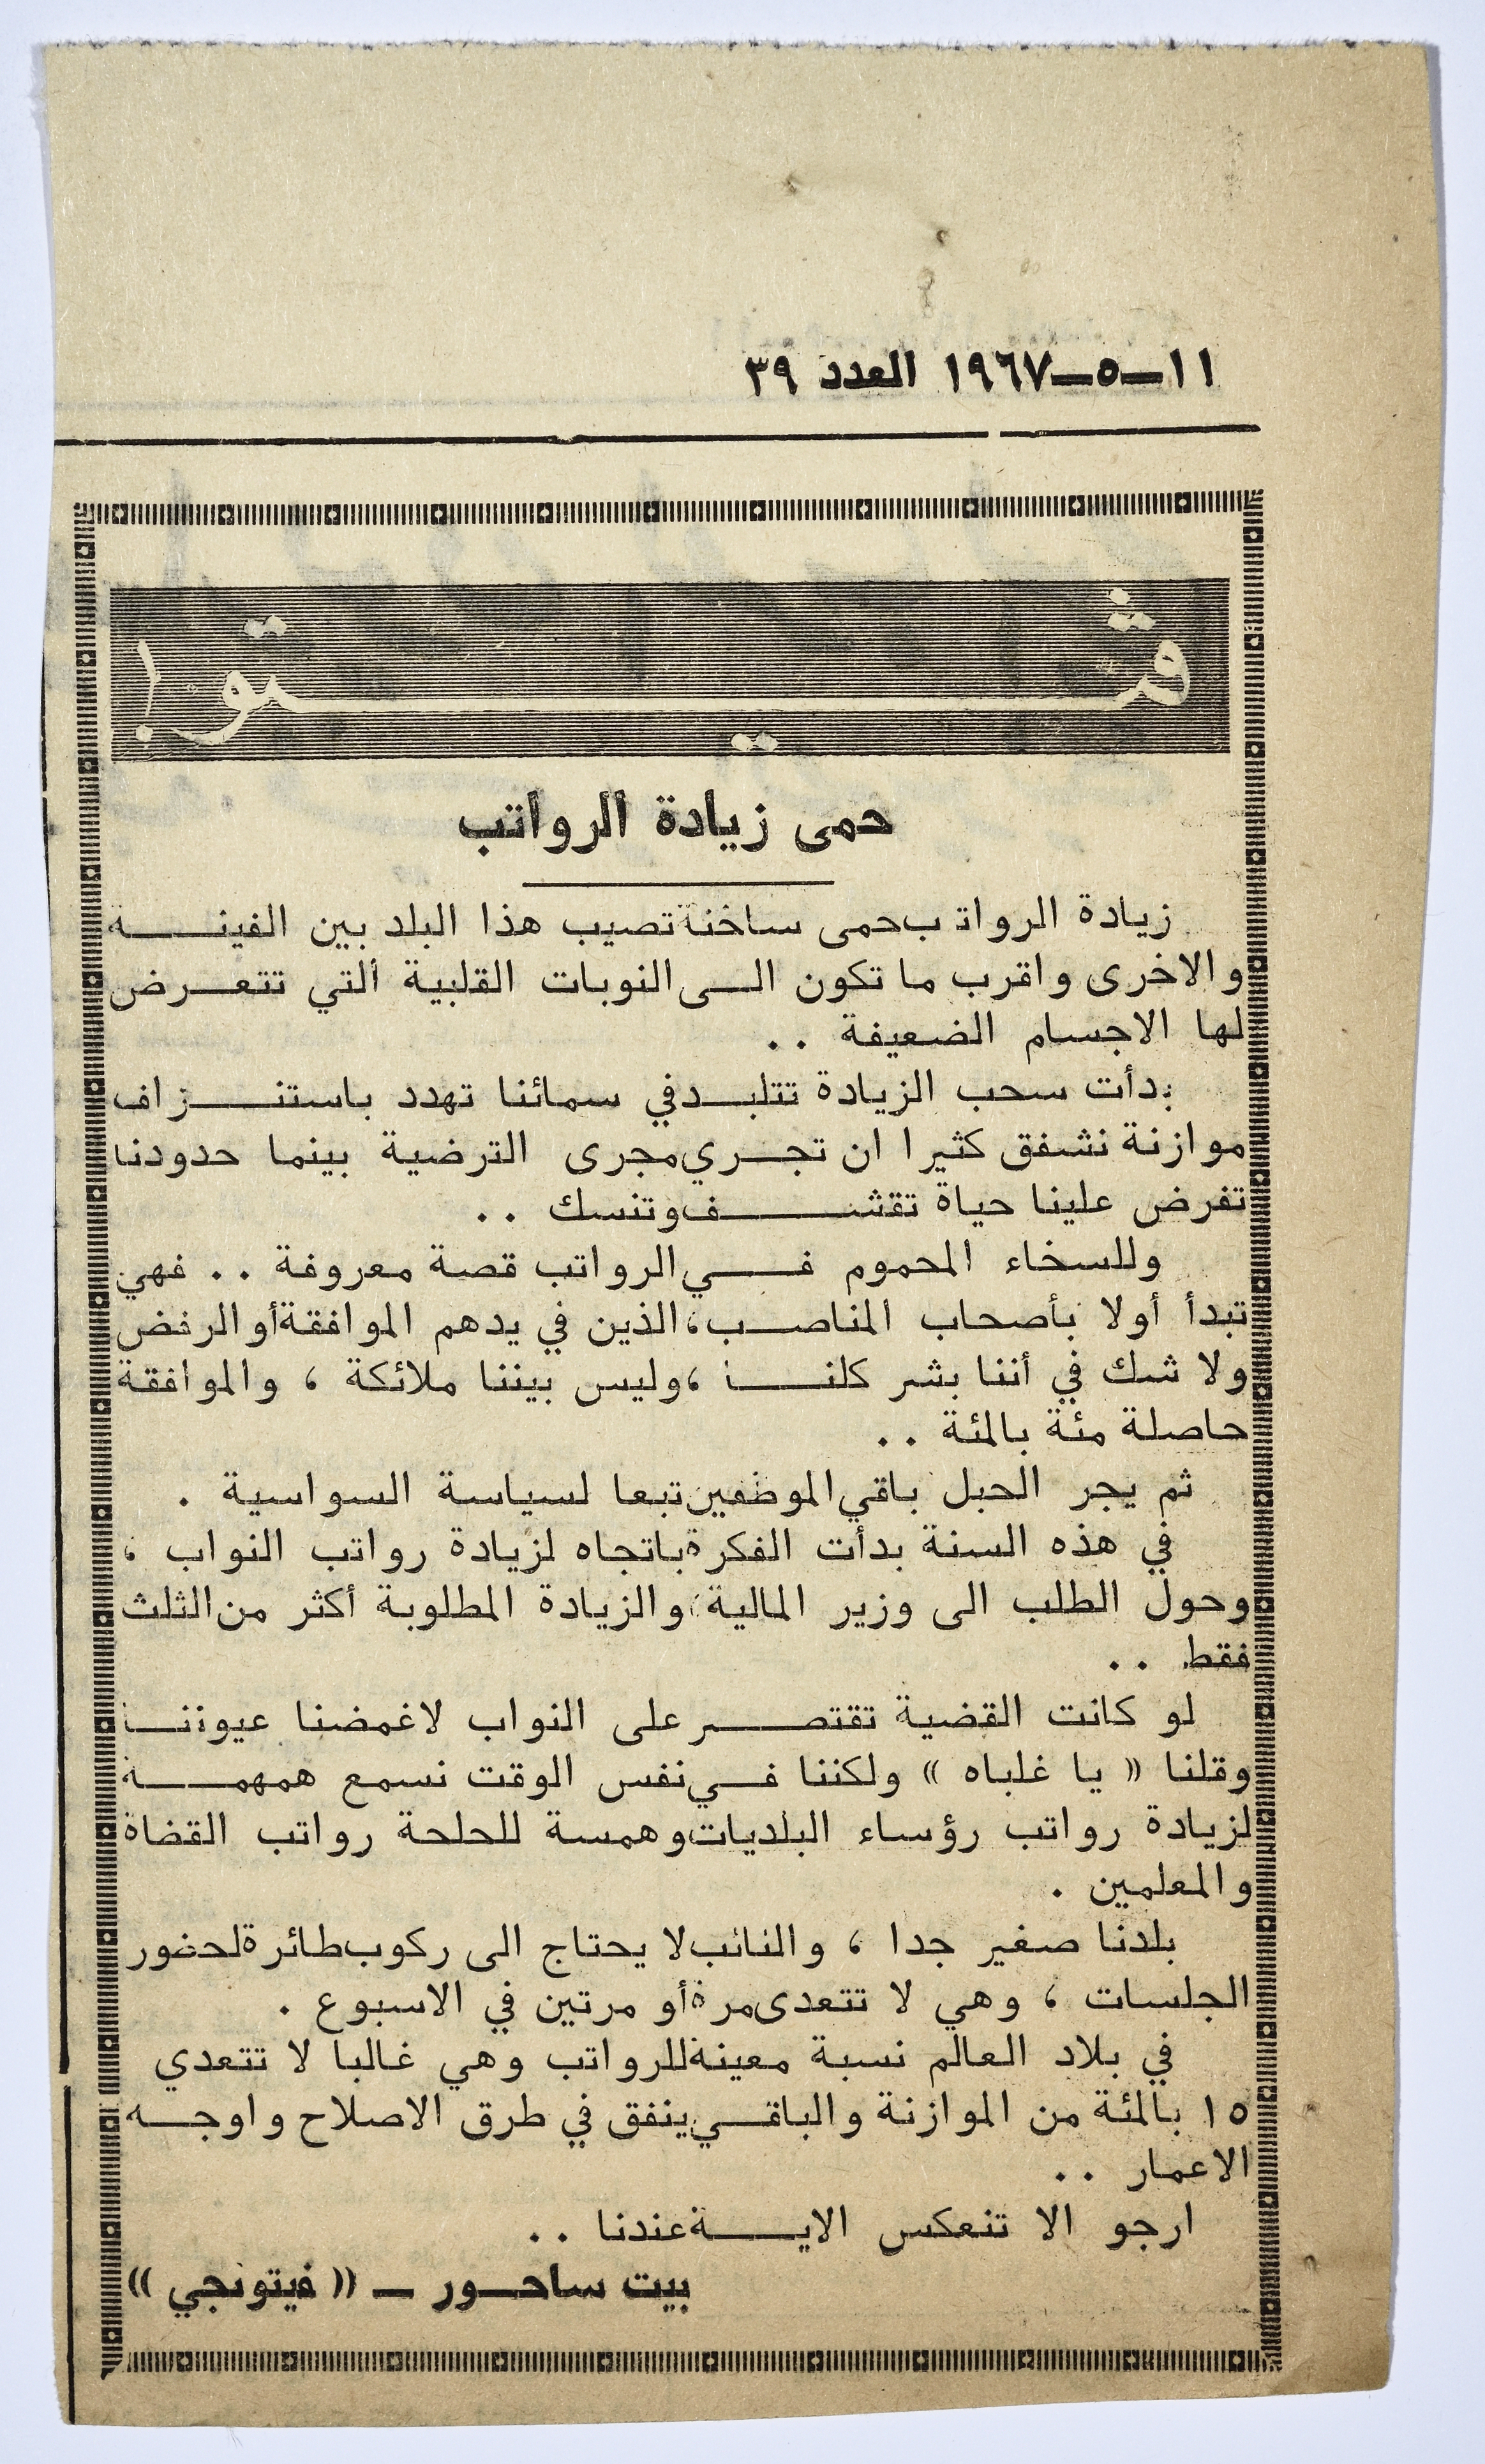 ١١ــ٥ــ١٩٦٧ العدد ٣٩
ڤيتو!
حمى زيادة الرواتب
زيادة الرواتب حمى ساخنة تصيب هذا البلد بين الفينــة
والاخرى واقرب ما تكون الــى النوبات القلبية التي تتعــرض
لها الاجسام الضعيفة ..
بدأت سحب الزيادة تتلبــد في سمائنا تهدد باستنــزاف
موازنة نشفق كثيرا ان تجــري مجرى الترضية بينما حدودنا
تفرض علينا حياة تقشــف وتنسك ..
وللسخاء المحموم فــي الرواتب قصة معروفة .. فهي
تبدأ أولا بأصحاب المناصــب، الذين في يدهم الموافقة أو الرفض
ولا شك في أننا بشر كلنــا ، وليس بيننا ملائكة ، والموافقة
حاصلة مئة بالمئة ..
ثم يجر الحبل باقي الموظفين تبعا لسياسة السواسية .
في هذه السنة بدأت الفكرة باتجاه لزيادة رواتب النواب ،
وحول الطلب الى وزير المالية، والزيادة المطلوبة أكثر من الثلث
فقط ..
لو كانت القضية تقتصــر على النواب لاغمضنا عيوننــا
وقلنا « يا غلباه » ولكننا فــي نفس الوقت نسمع همهمــة
لزيادة رواتب رؤساء البلديات وهمسة للحلحة رواتب القضاة
والمعلمين .
بلدنا صغير جدا ، والنائب لا يحتاج الى ركوب طائرة لحضور
الجلسات ، وهي لا تتعدى مرة أو مرتين في الاسبوع .
في بلاد العالم نسبة معينة للرواتب وهي غالبا لا تتعدي
١٥ بالمئة من الموازنة والباقــي ينفق في طرق الاصلاح واوجــه
الاعمار ..
ارجو الا تنعكس الايــة عندنا ..
بيت ساحــور ــ « فيتونجي »